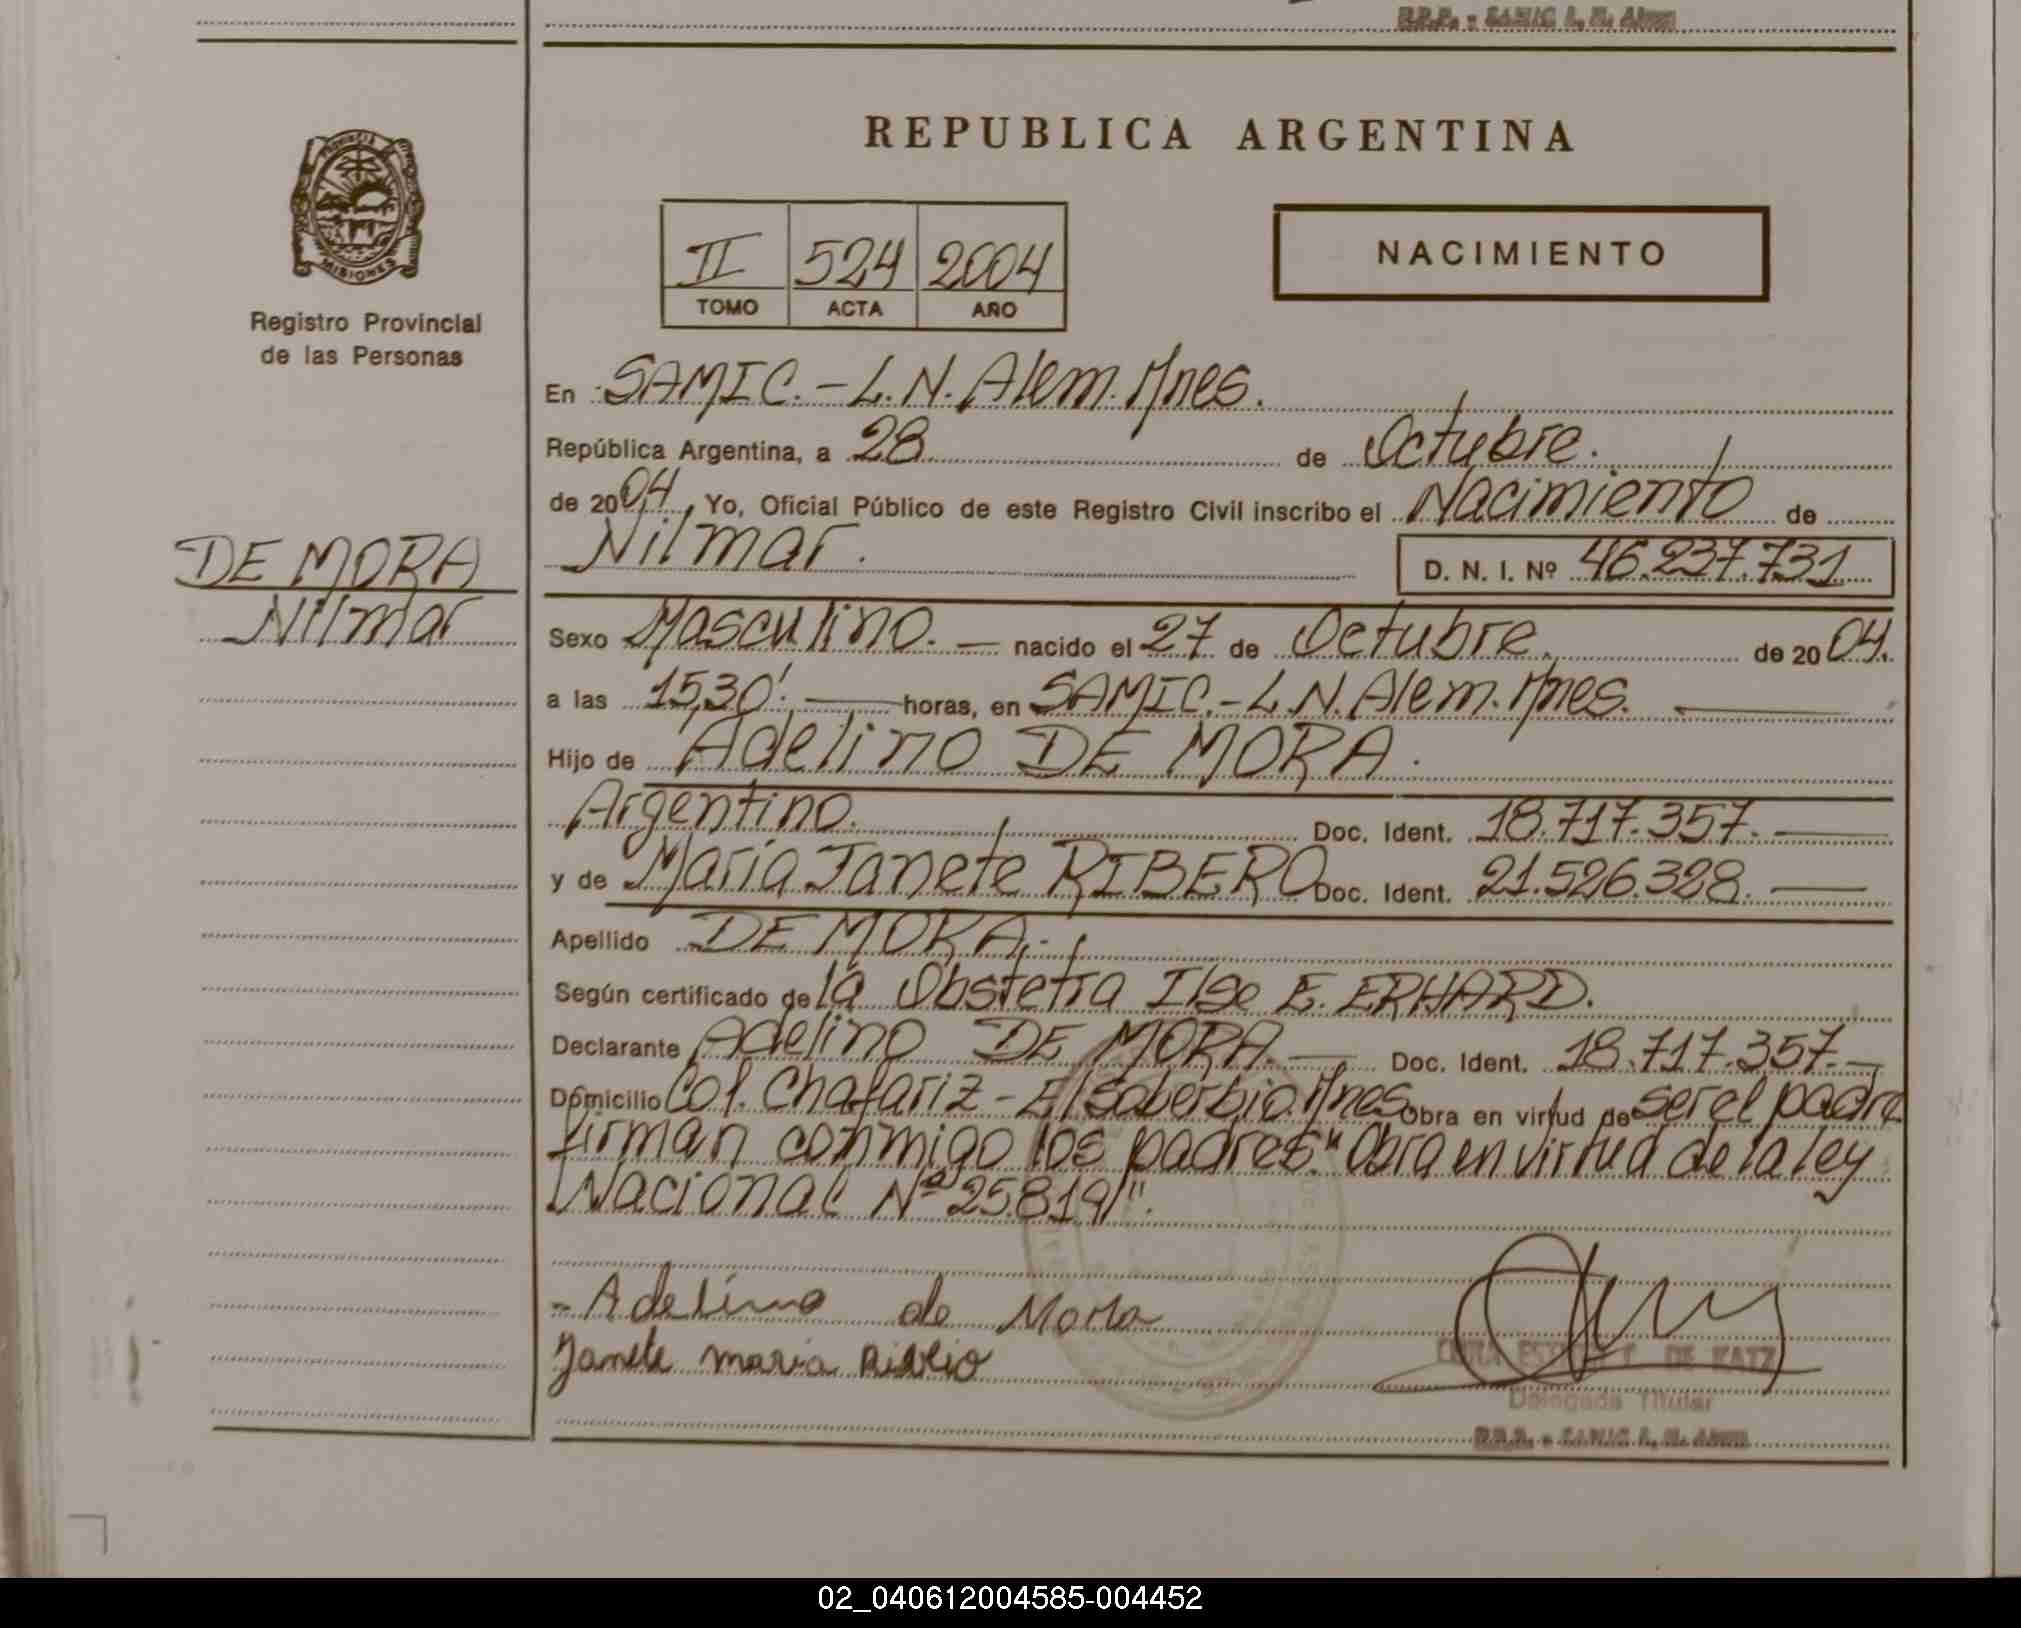 R.P.P. - SAMIC L. N. Alem
REPUBLICA ARGENTINA
PROVINCIA
MISIONES
Registro Provincial
de las Personas
II 524 2004
TOMO ACTA AÑO
NACIMIENTO
En SAMIC.-L.N.Alem.Mnes.
República Argentina, a 28 de Octubre.
de 2004 Yo, Oficial Público de este Registro Civil inscribo el Nacimiento de
Nilmar. D. N. I. Nº 46.237.731
DE MORA
Nilmar
Sexo Masculino.— nacido el 27 de Octubre. de 2004.
a las 15,30'.— horas, en SAMIC.-L.N.Alem.Mnes.—
Hijo de Adelino DE MORA.
Argentino. Doc. Ident. 18.717.357.—
y de María Janete RIBERO Doc. Ident. 21.526.328.—
Apellido DE MORA.-
Según certificado de la Obstetra Ilse E. ERHARD.
Declarante Adelino DE MORA.— Doc. Ident. 18.717.357.—
Domicilio Col. Chafariz-El Soberbio.Mnes. Obra en virtud de ser el padre
firman conmigo los padres."Obra en virtud de la ley
Nacional Nº 25.819/".
- Adelino de Mora
Janete maria Ribeio
DE KATZ
Delegada Titular
R.P.P. - SAMIC L. N. Alem
02_040612004585-004452